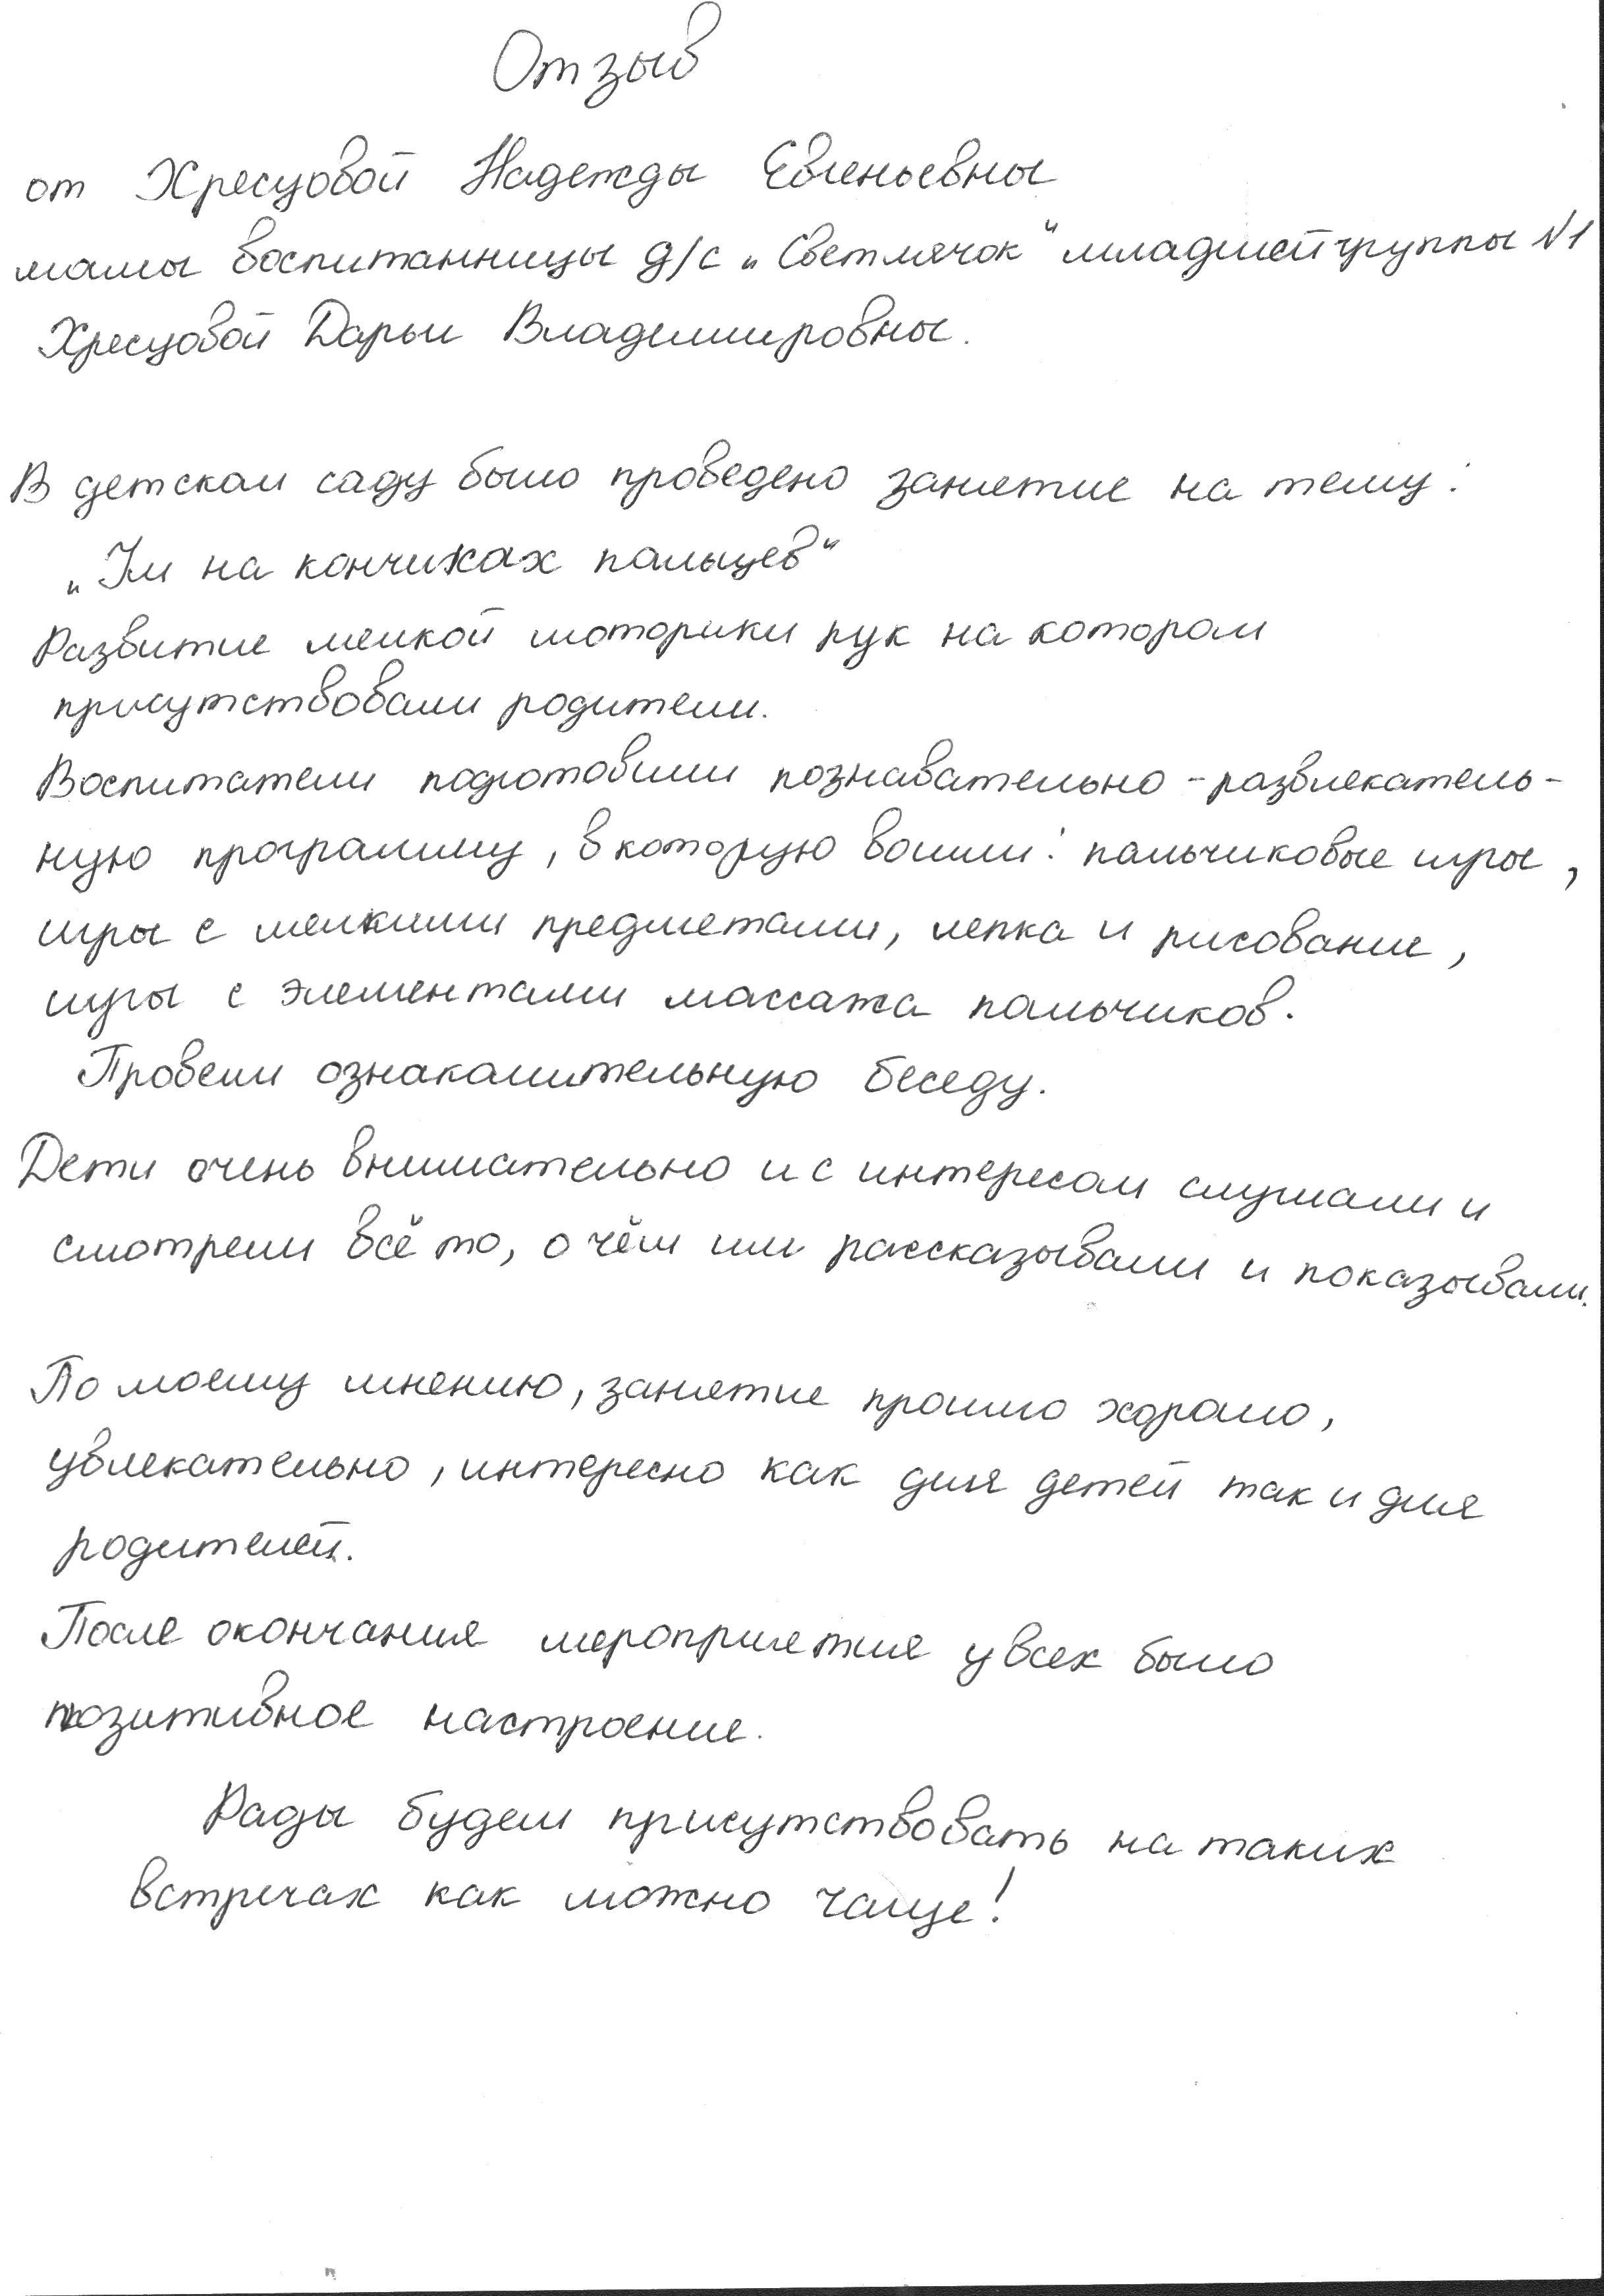 Отзыв
от Хресцовой Надежды Евгеньевны
мамы воспитанницы д/с „Светлячок“ младшей группы №1
Хресцовой Дарьи Владимировны.
В детском саду было проведено занятие на тему:
„Ум на кончиках пальцев“
Развитие мелкой моторики рук на котором
присутствовали родители.
Воспитатели подготовили познавательно-развлекатель-
ную программу, в которую вошли: пальчиковые игры,
игры с мелкими предметами, лепка и рисование,
игры с элементами массажа пальчиков.
Провели ознакомительную беседу.
Дети очень внимательно и с интересом слушали и
смотрели всё то, о чём им рассказывали и показывали.
По моему мнению, занятие прошло хорошо,
увлекательно, интересно как для детей так и для
родителей.
После окончания мероприятия у всех было
позитивное настроение.
Рады будем присутствовать на таких
встречах как можно чаще!